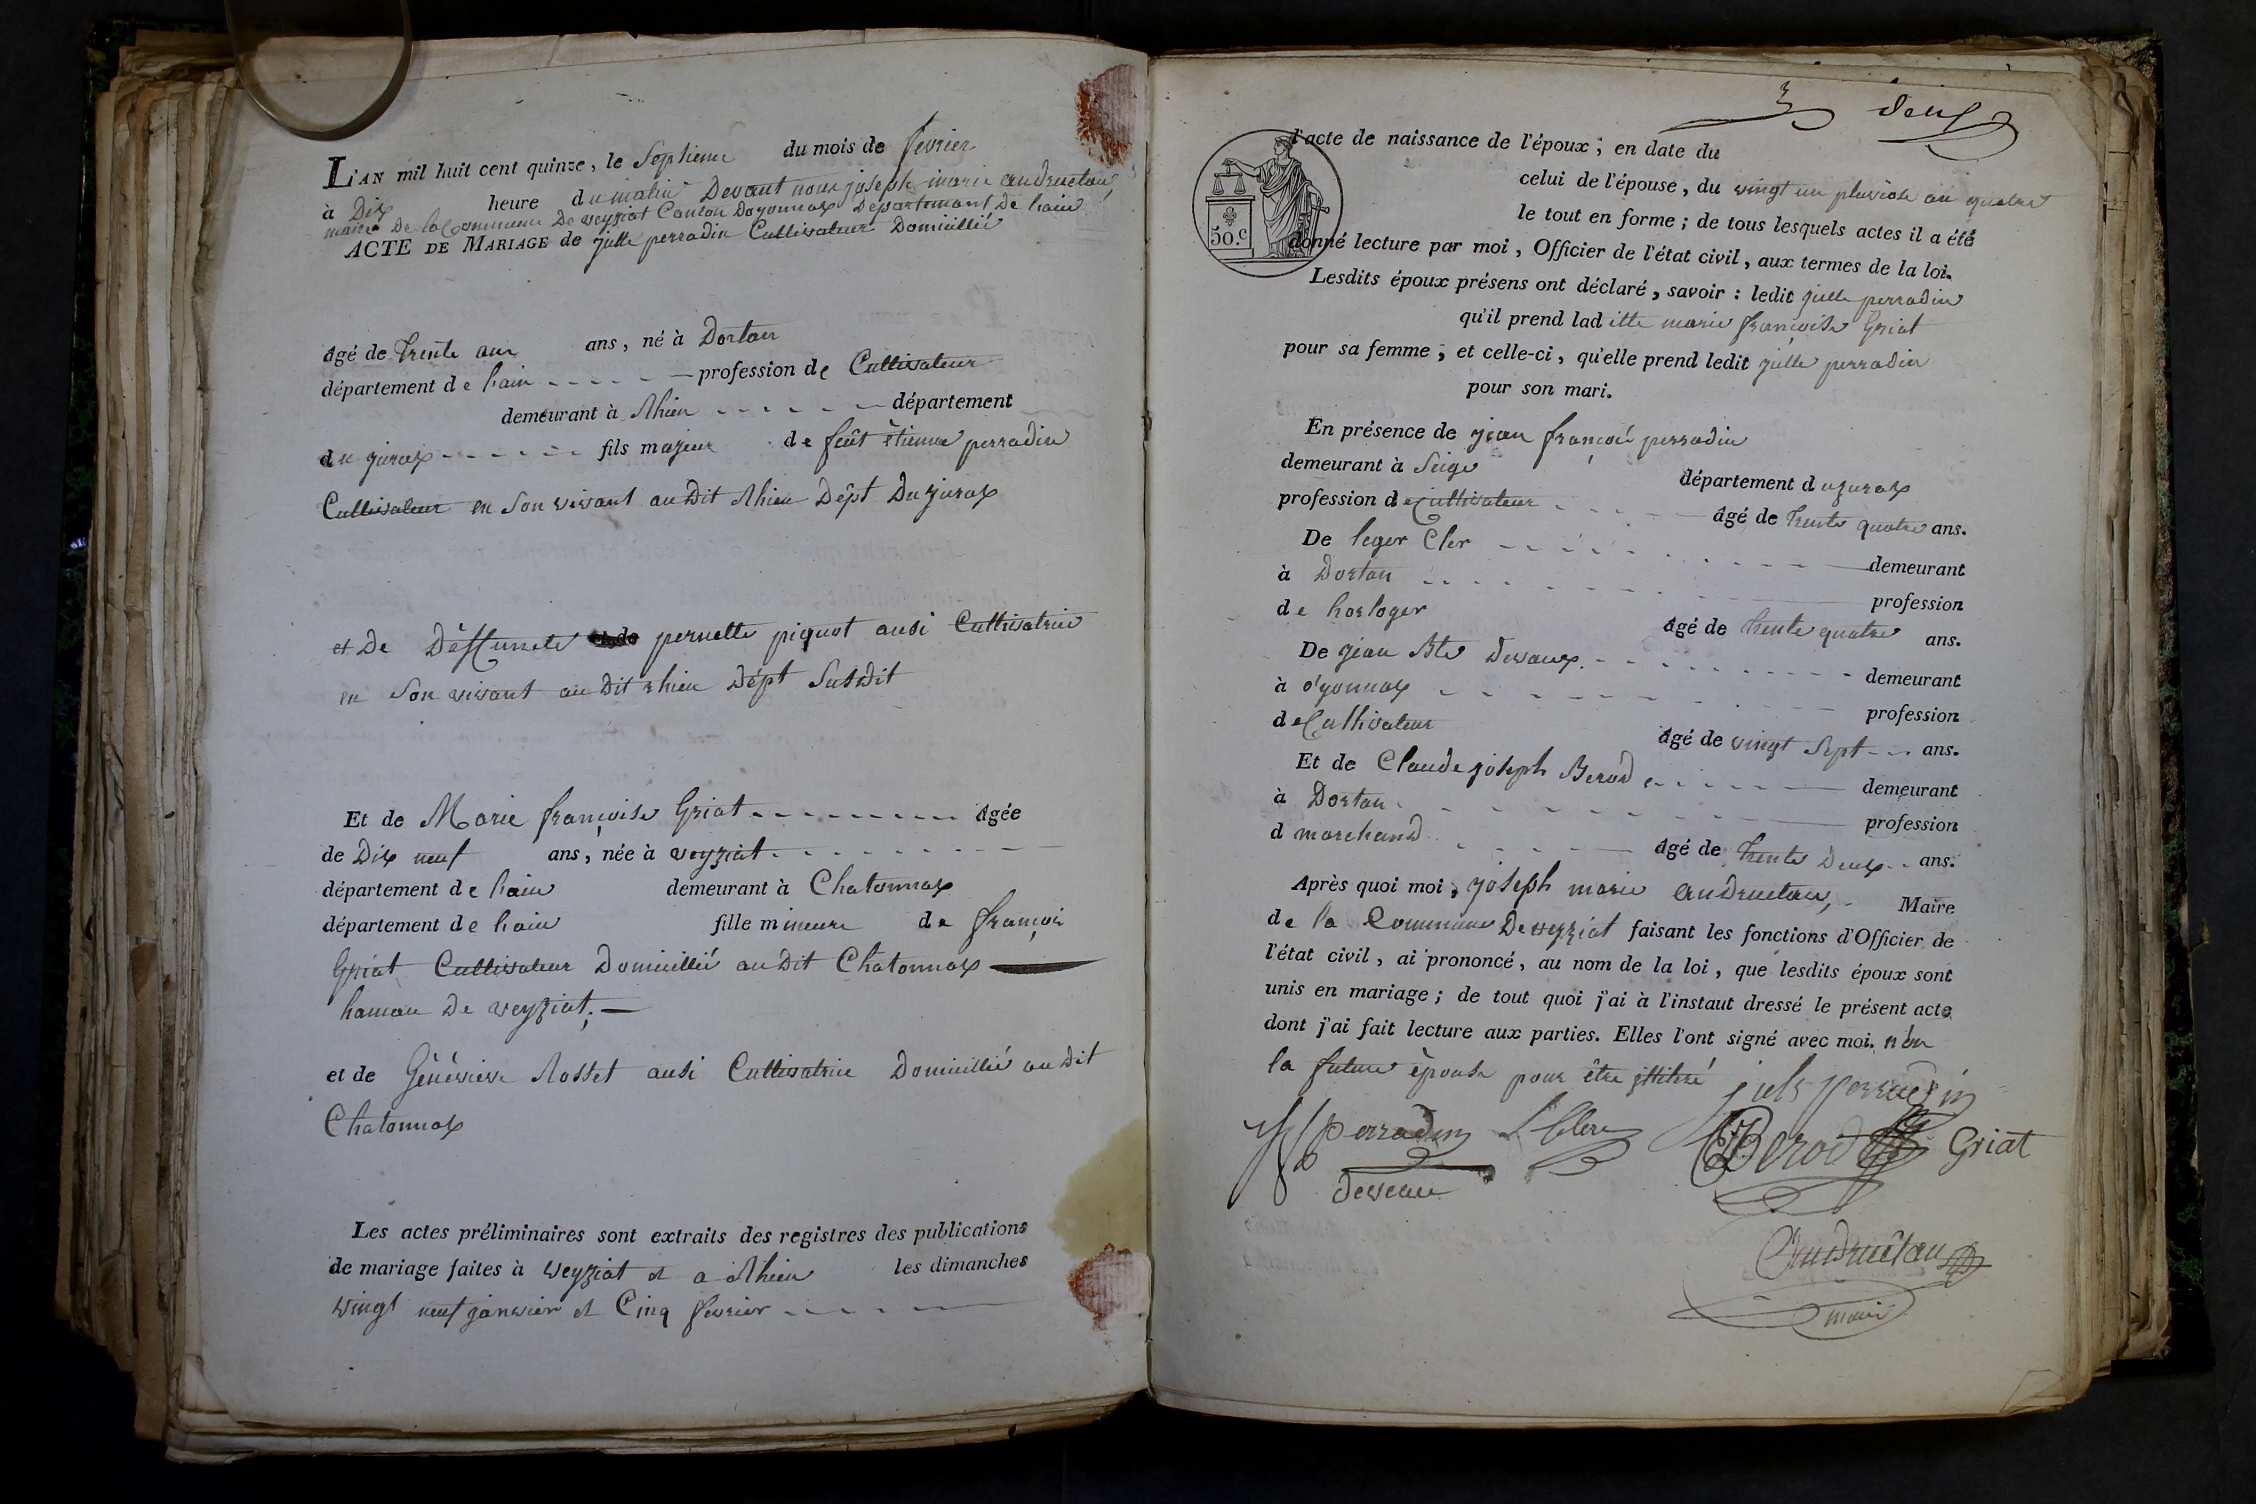 L'AN mil huit cent quinze, le Septieme du mois de fevrier
à Dix heure du matin Devant nous joseph marie andruetan
maire De la Commune De veyziat Canton Doyonnax Departement De hain
ACTE DE MARIAGE de julle perradin Cultivateur Domicillié
âgé de trente ans, né à Dortan
département de hain profession de Cultivateur
demeurant à Rhien département
du jurax fils majeur de feüt étienne perradin
Cultivateur en Son vivant au Dit Rhien Dépt Du jurax
et De Déffunete pernette piquot ausi Cultivatrice
en Son vivant au Dit rhien Dépt Susdit
Et de Marie françoise Griat âgée
de Dix neuf ans, née à veyziat
département de hain demeurant à Chatonnax
département de hain fille mineure de françois
Griat Cultivateur Domicillié au Dit Chatonnax
hamau De veyziat.
et de Généviève Rosset ausi Cultivatrice Domicillié au Dit
Chatonnax
Les actes préliminaires sont extraits des registres des publications
de mariage faites à Veyziat et a Rhien les dimanches
vingt neuf janvier et Cinq fevrier
deux
l'acte de naissance de l'époux; en date du
celui de l'épouse, du vingt un pluviose an quatre
le tout en forme; de tous lesquels actes il a été
50.c
donné lecture par moi, Officier de l'état civil, aux termes de la loi.
Lesdits époux présens ont déclaré, savoir: ledit julle perradin
qu'il prend laditte marie françoise Griat
pour sa femme; et celle-ci, qu'elle prend ledit julle perradin
pour son mari.
En présence de jean françois perradin
demeurant à Siège département du jurax
profession de Cultivateur âgé de trente quatre ans.
De leger Cler demeurant
à Dortan profession
de horloger âgé de trente quatre ans.
De jean Bte Devaux demeurant
à o'yonnax profession
de Cultivateur âgé de vingt Sept ans.
Et de Claude joseph Berod demeurant
à Dortan profession
d marchand âgé de trente Deux ans.
Après quoi moi, joseph marie andruetan, Maire
de la Commune De veyziat faisant les fonctions d'Officier de
l'état civil, ai prononcé, au nom de la loi, que lesdits époux sont
unis en mariage; de tout quoi j'ai à l'instaut dressé le présent acte
dont j'ai fait lecture aux parties. Elles l'ont signé avec moi. non
la future épouse pour être illitéré
juls perradin
perradin L Clerc Berod Griat
deveau
Andruétan
maire